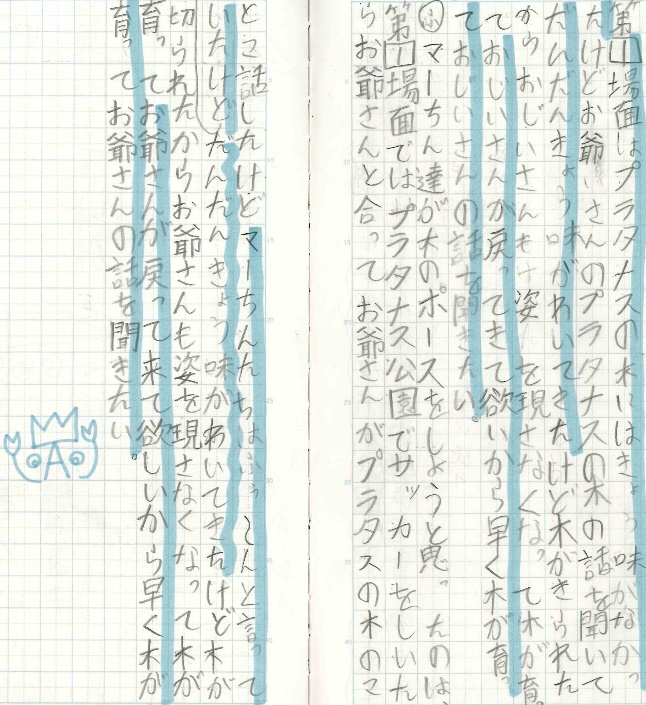 第1場面はプラタナスの木にはきょう味がなかっ
たけどお爺いさんのプラタナスの木の話を聞いて
だんだんきょう味がわいてきたけど木がきられた
からおじいさんも姿を現さなくなって木が育っ
ておじいさんが戻ってきて欲いから早く木が育っ
ておじいさんの話を聞きたい。
マーちん達が木のポーズをしようと思ったのは、
第1場面ではプラタナス公園でサッカーをしいた
らお爺さんと合ってお爺さんがプラタスの木のこ
とを話したけどマーちんたちはふぅ~んと言って
いたけどだんだんきょう味がわいてきたけど木が
切られたからお爺さんも姿を現さなくなって木が
育ってお爺さんが戻って来て欲しいから早く木が
育ってお爺さんの話を聞きたい。